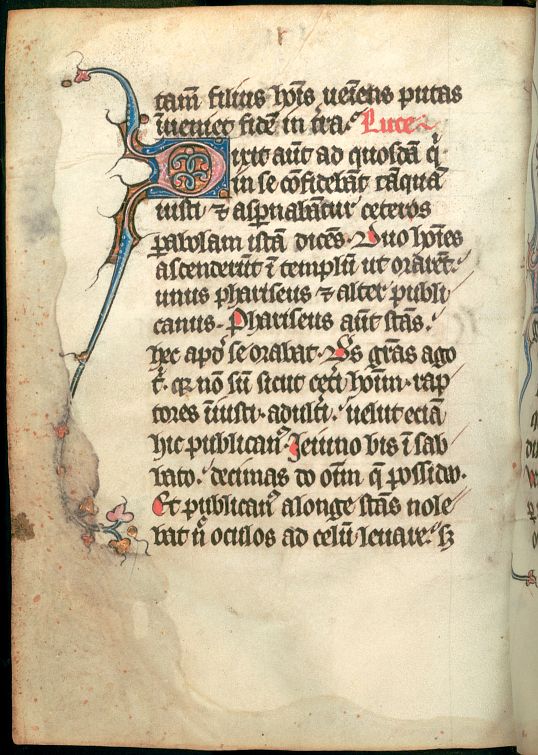 tam̄ filius hoı̄s ueı̄ens putas
ı̄ueniet fidē in tr̄a. Luce
Dixit aūt ad quosdā q̇
in se cōfidebāt tāquā
iusti ⁊ asp̄nabāntur ceteros
ꝑabolam istā dicēs. Duo hoı̄es
ascenderūt ī templū ut orarēt.
unus phariseus ⁊ alter publi
canus. Phariseus aūt stās.
hec apđ se orabat. Ds̄ gr̄as ago
t̄. qꝛ nō sū sicut cet̄i hoı̄um. rap
tores īiusti. adult̄i. uelut eciā
hic publicanꝰ. Ieiuno bis ī sab
bato. decimas do oı̄m q̄ possideo.
Et publicanꝰ alonge stās nole
bat n̄ oculos ad celū leuare. sꝫ